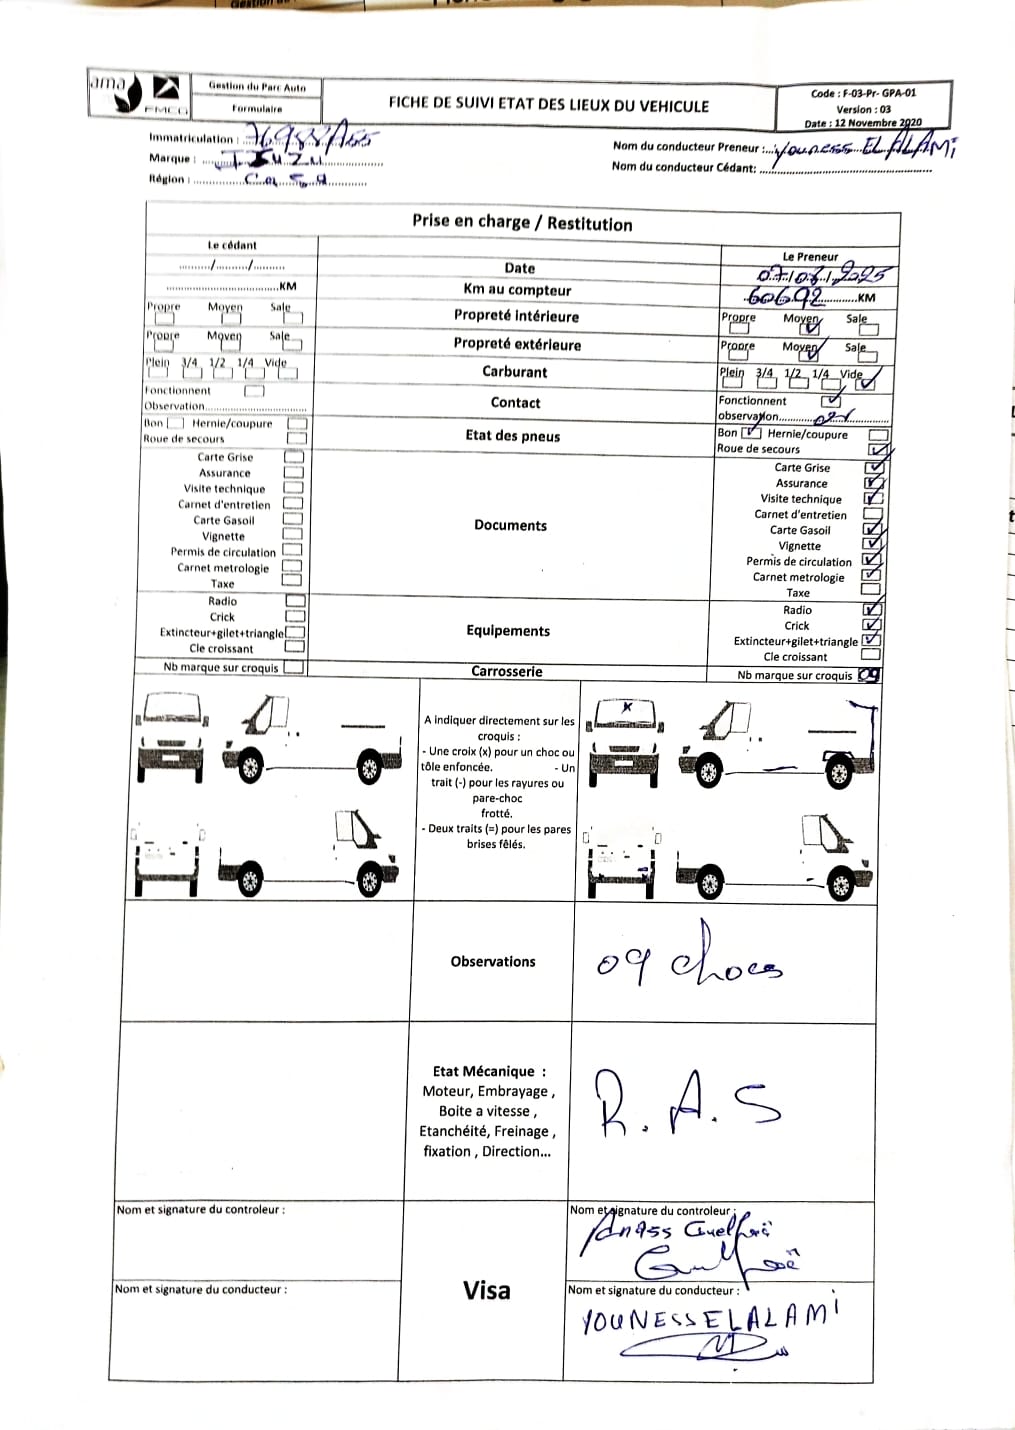 ama
FMCG
Gestion du Parc Auto
Formulaire
FICHE DE SUIVI ETAT DES LIEUX DU VEHICULE
Code : F-03-Pr- GPA-01
Version : 03
Date : 12 Novembre 2020
Immatriculation :
Marque : ISUZU
Région : Casa
Nom du conducteur Preneur : Youness EL ALAMI
Nom du conducteur Cédant:
Prise en charge / Restitution
Le cédant
Le Preneur
........../........../..........
Date
2025
KM
Km au compteur
60692 KM
Propre Moyen Sale
Propreté intérieure
Propre Moyen Sale
Propre Moyen Sale
Propreté extérieure
Propre Moyen Sale
Plein 3/4 1/2 1/4 Vide
Carburant
Plein 3/4 1/2 1/4 Vide
Fonctionnent
Observation
Contact
Fonctionnent
observation
Bon Hernie/coupure
Roue de secours
Etat des pneus
Bon Hernie/coupure
Roue de secours
Carte Grise
Assurance
Visite technique
Carnet d'entretien
Carte Gasoil
Vignette
Permis de circulation
Carnet metrologie
Taxe
Documents
Carte Grise
Assurance
Visite technique
Carnet d'entretien
Carte Gasoil
Vignette
Permis de circulation
Carnet metrologie
Taxe
Radio
Crick
Extincteur+gilet+triangle
Cle croissant
Equipements
Radio
Crick
Extincteur+gilet+triangle
Cle croissant
Nb marque sur croquis
Carrosserie
Nb marque sur croquis 09
A indiquer directement sur les
croquis :
- Une croix (x) pour un choc ou
tôle enfoncée. - Un
trait (-) pour les rayures ou
pare-choc
frotté.
- Deux traits (=) pour les pares
brises fêlés.
Observations
09 chocs
Etat Mécanique :
Moteur, Embrayage ,
Boite a vitesse ,
Etanchéité, Freinage ,
fixation , Direction...
R.A.S
Nom et signature du controleur :
Visa
Nom et signature du controleur :
Anass
Nom et signature du conducteur :
Nom et signature du conducteur :
YOUNESS ELALAMI